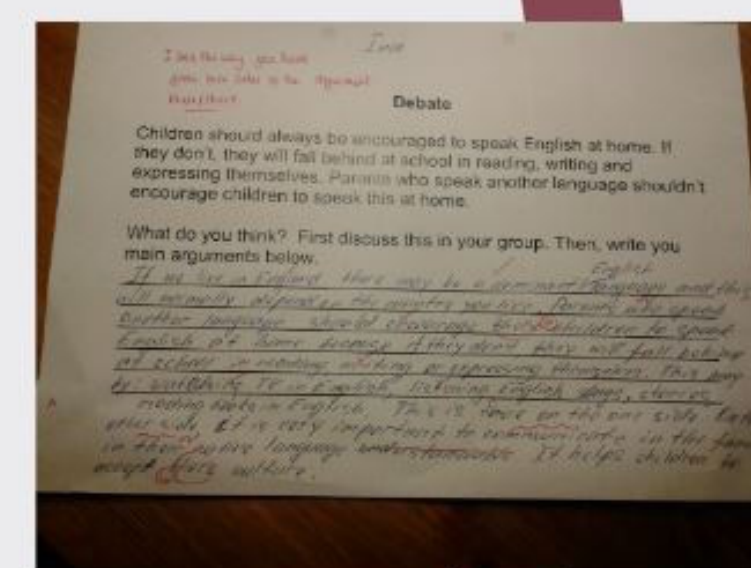 I like the way you have
given both sides to the argument
Debate
Children should always be encouraged to speak English at home. If
they don't, they will fall behind at school in reading, writing and
expressing themselves. Parents who speak another language shouldn't
encourage children to speak this at home.
What do you think? First discuss this in your group. Then, write you
main arguments below.
English
If we live in England there may be a dominant language and this
will normally depend on the country you live. Parents who speak
another language should encourage their children to speak
English at home because if they don't they will fall behind
at school in reading, writing or expressing themselves. This may
by: watching TV in English, listening English songs, stories,
reading books in English. This is true on the one side.
other side it is very important to communicate in the
in their native language It helps children to
accept culture.